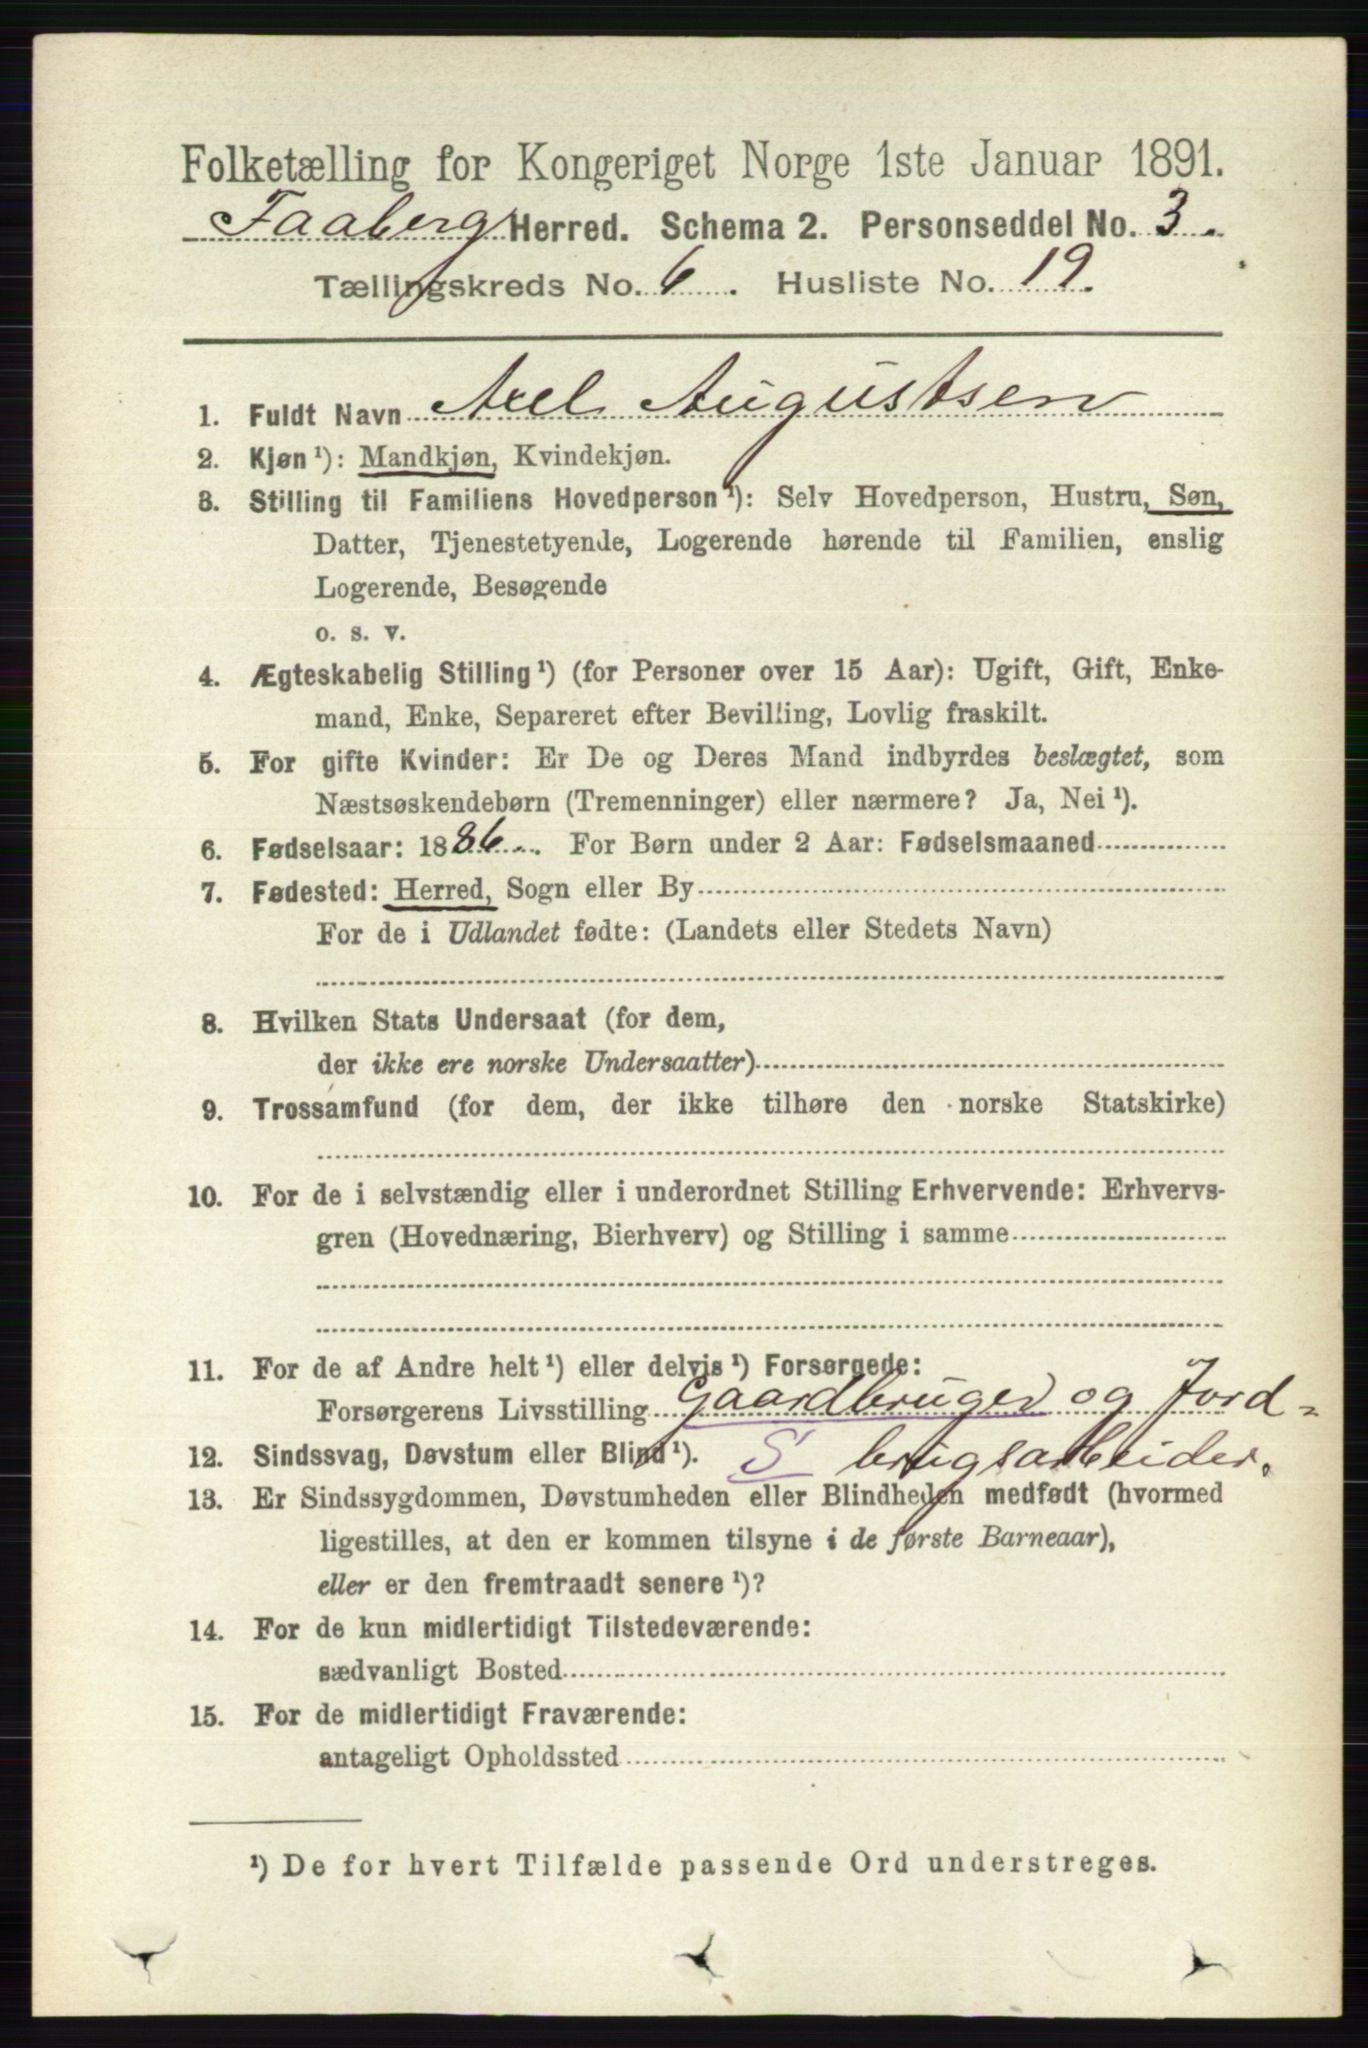 Folketælling for Kongeriget Norge 1ste Januar 1891.
Faaberg Herred. Schema 2. Personseddel No. 3.
Tællingskreds No. 6. Husliste No. 19.
1. Fuldt Navn Axel Augustsen
2. Kjøn ¹): Mandkjøn, Kvindekjøn.
3. Stilling til Familiens Hovedperson ¹): Selv Hovedperson, Hustru, Søn,
Datter, Tjenestetyende, Logerende hørende til Familien, enslig
Logerende, Besøgende
o. s. v.
4. Ægteskabelig Stilling ¹) (for Personer over 15 Aar): Ugift, Gift, Enke-
mand, Enke, Separeret efter Bevilling, Lovlig fraskilt.
5. For gifte Kvinder: Er De og Deres Mand indbyrdes beslægtet, som
Næstsøskendebørn (Tremenninger) eller nærmere? Ja, Nei ¹).
6. Fødselsaar: 1886. For Børn under 2 Aar: Fødselsmaaned
7. Fødested: Herred, Sogn eller By
For de i Udlandet fødte: (Landets eller Stedets Navn)
8. Hvilken Stats Undersaat (for dem,
der ikke ere norske Undersaatter)
9. Trossamfund (for dem, der ikke tilhøre den norske Statskirke)
10. For de i selvstændig eller i underordnet Stilling Erhvervende: Erhvervs-
gren (Hovednæring, Bierhverv) og Stilling i samme
11. For de af Andre helt ¹) eller delvis ¹) Forsørgede:
Forsørgerens Livsstilling Gaardbruger og Jord-
12. Sindssvag, Døvstum eller Blind ¹). S brugsarbeider.
13. Er Sindssygdommen, Døvstumheden eller Blindheden medfødt (hvormed
ligestilles, at den er kommen tilsyne i de første Barneaar),
eller er den fremtraadt senere ¹)?
14. For de kun midlertidigt Tilstedeværende:
sædvanligt Bosted
15. For de midlertidigt Fraværende:
antageligt Opholdssted
¹) De for hvert Tilfælde passende Ord understreges.